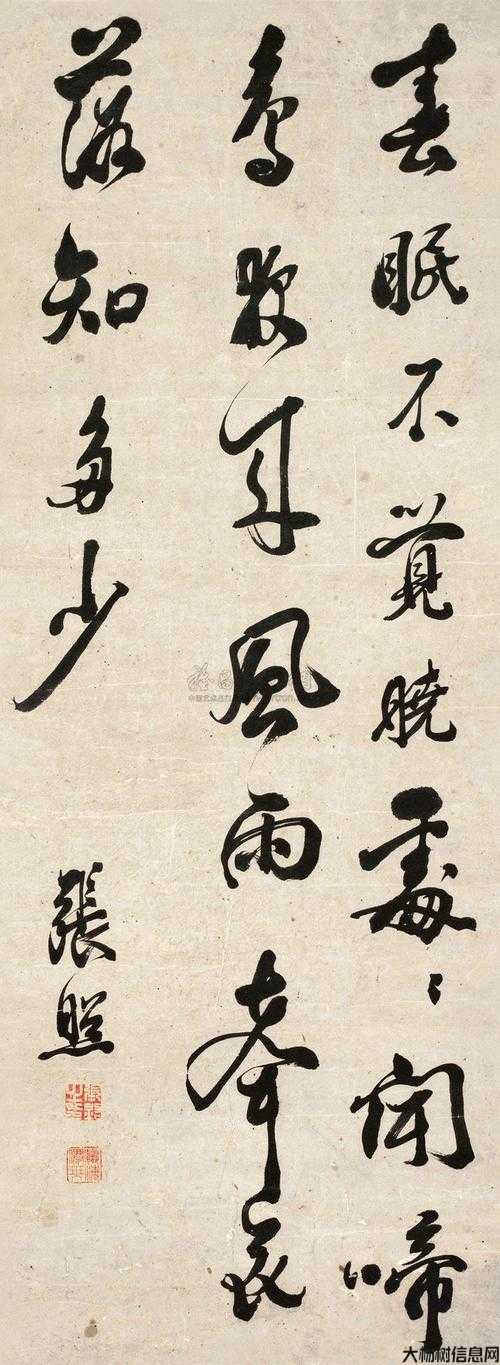 春眠不覺曉處〻聞啼
鳥夜來風雨聲花
落知多少
張照
大杨树信息网